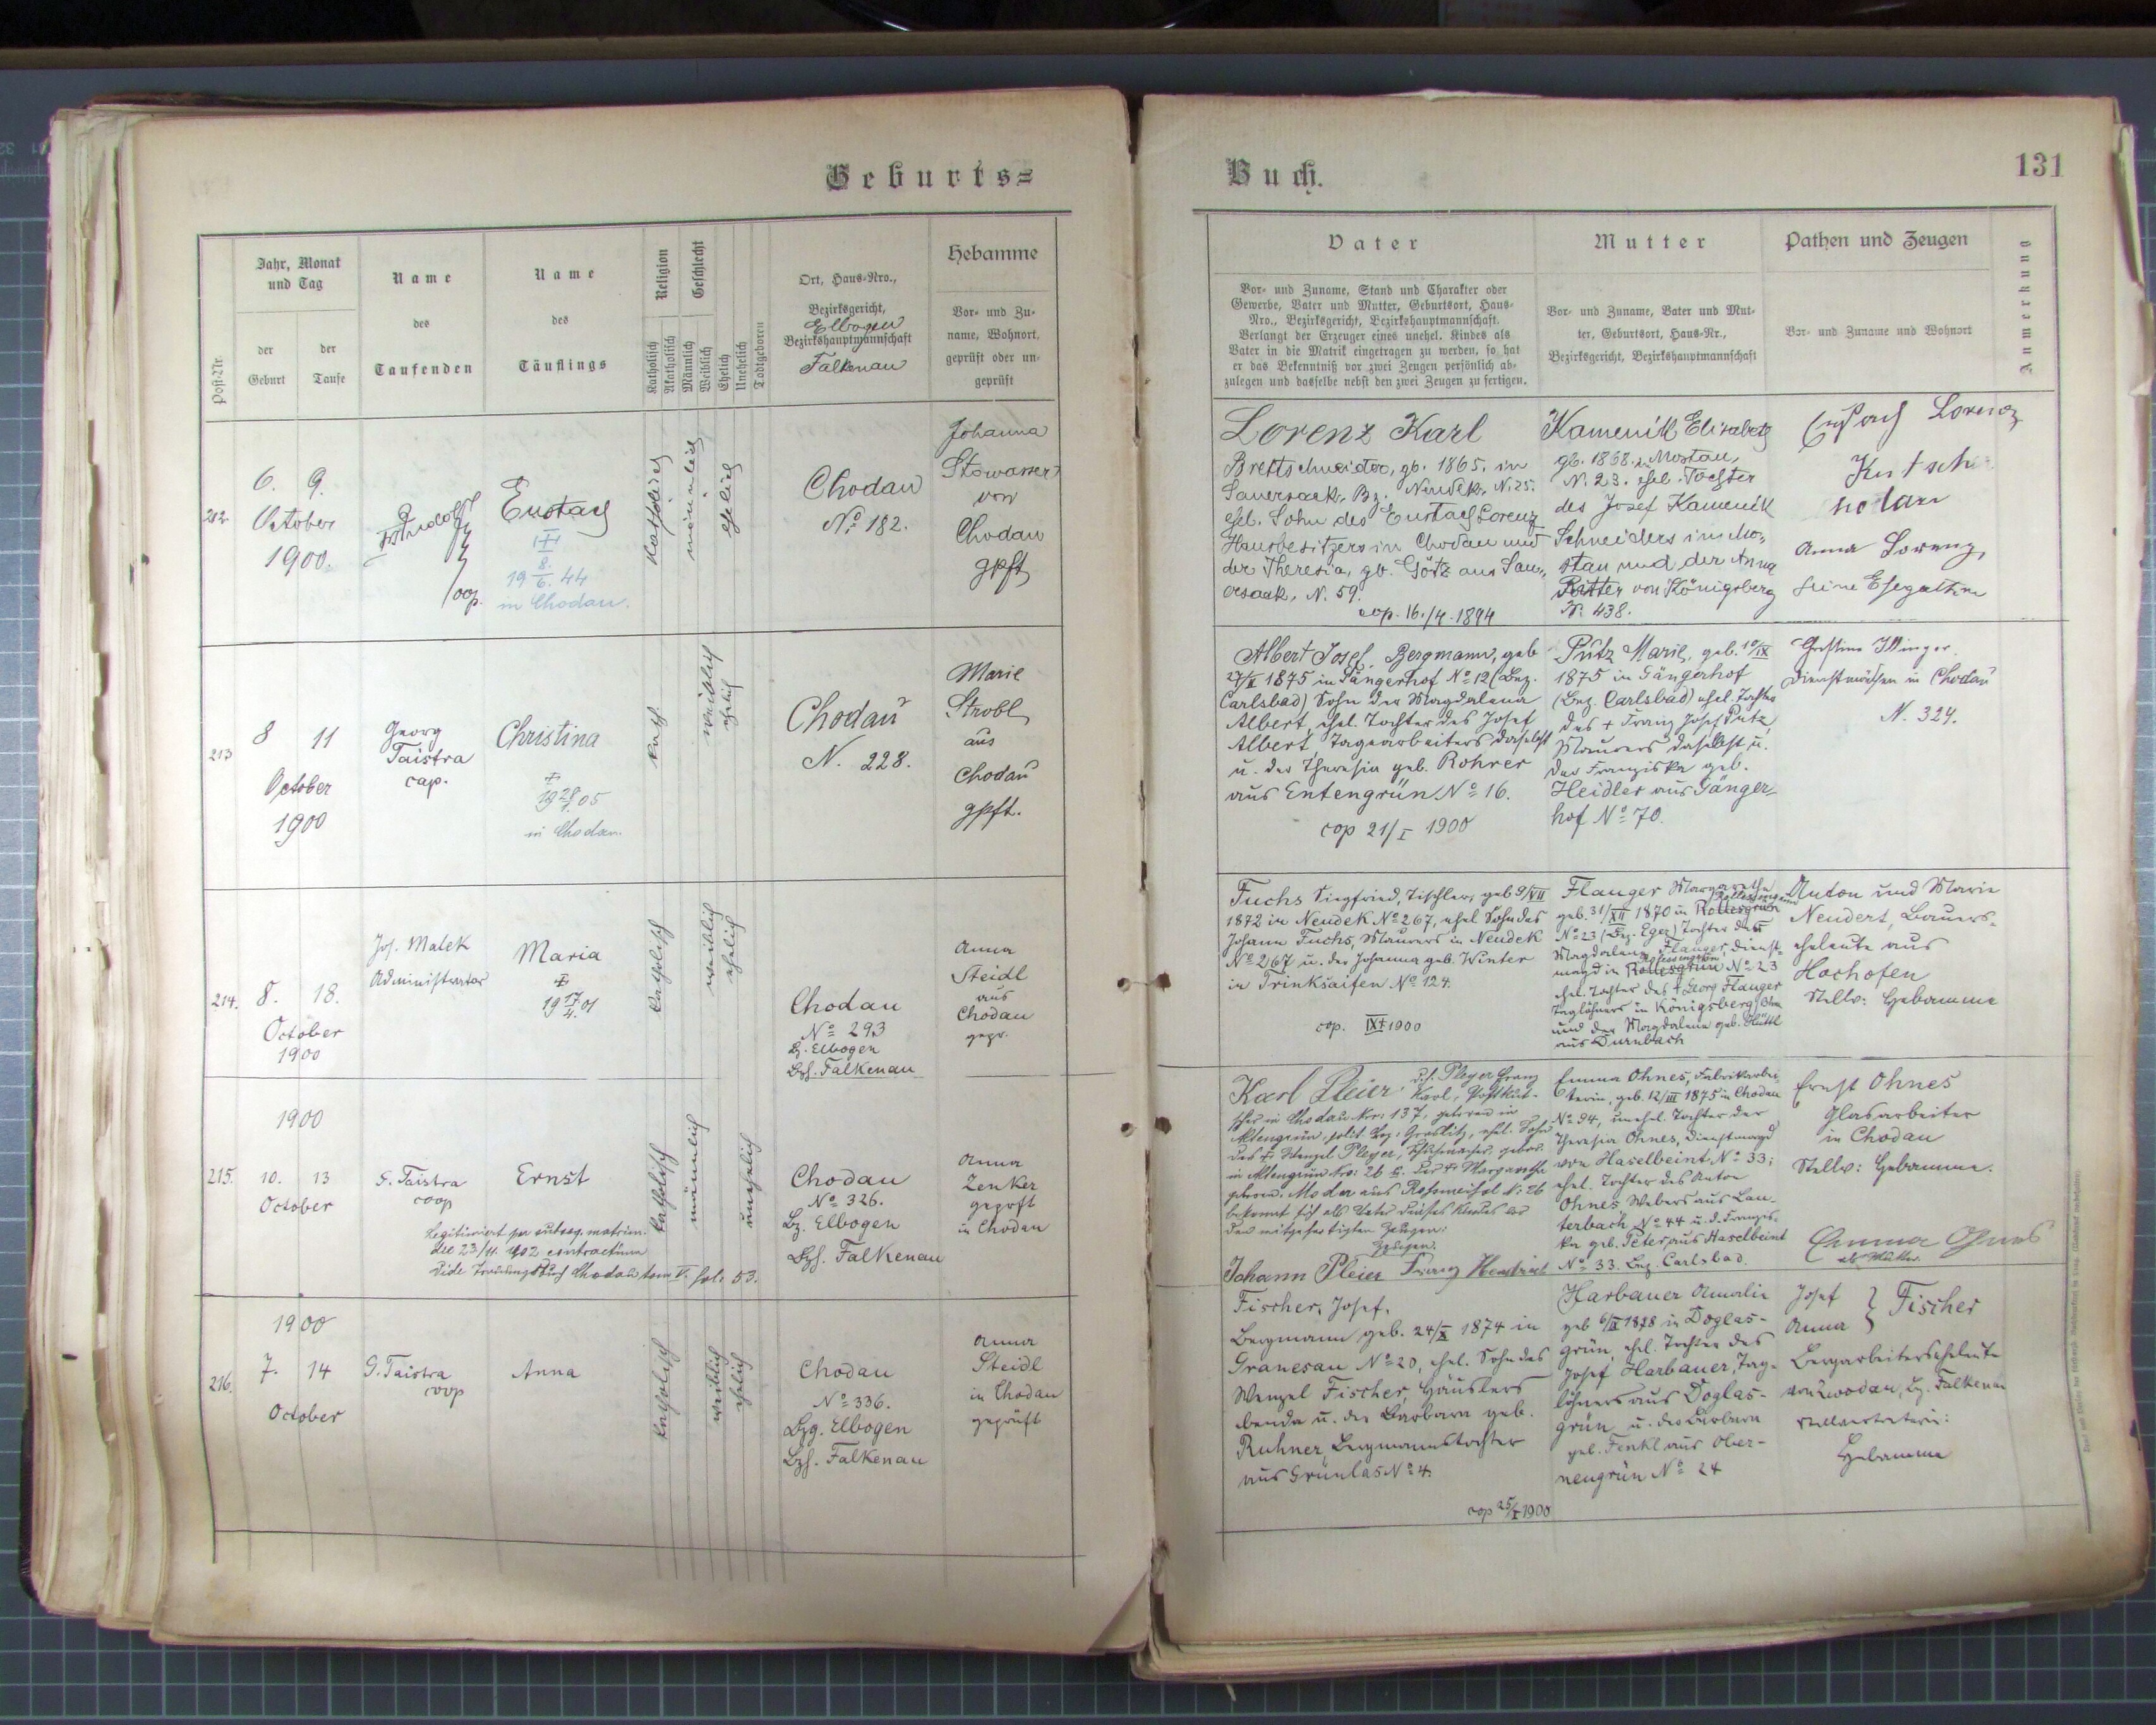 Geburts=
Jahr, Monat
und Tag
Name
Name
Religion
Geschlecht
Ort, Haus=Nro.,
Hebamme
des
des
Bezirksgericht,
Elbogen
Bezirkshauptmannschaft
Falkenau
Vor= und Zu=
name, Wohnort,
geprüft oder un=
geprüft
Post=Nr.
der
Geburt
der
Taufe
Taufenden
Täuflings
Katholisch
Akatholisch
Männlich
Weiblich
Ehelich
Unehelich
Todtgeboren
212.
6. 9.
October
1900.
Rudolf
coop.
Eustach
8.
19 6. 44
in Chodau.
katholisch
männlich
ehelich
Chodau
No 182.
Johanna
Stowasser
von
Chodau
gpft
213
8 11
October
1900
Georg
Taistra
cap.
Christina
+
19 28/1. 05
in Chodau.
kath.
weiblich
ehelich
Chodau
N. 228.
Marie
Strobl
aus
Chodau
gpft.
214.
8. 18.
October
1900
Jos. Malek
Administrator
Maria
+
19 17/4. 01
katholisch
weiblich
ehelich
Chodau
No 293
Bz. Elbogen
Bzh. Falkenau
Anna
Steidl
aus
Chodau
gepr.
1900
215.
10. 13
October
G. Taistra
coop
Ernst
Legitimiert per subseq. matrim.
die 23/11. 902 contractum
vide Trauungsbuch Chodau tom V. fol. 53.
katholisch
männlich
unehelich
Chodau
No 326.
Bz. Elbogen
Bzh. Falkenau
Anna
Zenker
geprft
in Chodau
1900
216.
7. 14
October
G. Taistra
coop
Anna
katholisch
weiblich
ehelich
Chodau
No 336.
Bzg. Elbogen
Bzh. Falkenau
Anna
Steidl
in Chodau
geprüft
Buch.
131
Vater
Mutter
Pathen und Zeugen
Anmerkung
Vor= und Zuname, Stand und Charakter oder
Gewerbe, Vater und Mutter, Geburtsort, Haus=
Nro., Bezirksgericht, Bezirkshauptmannschaft.
Verlangt der Erzeuger eines unehel. Kindes als
Vater in die Matrik eingetragen zu werden, so hat
er das Bekenntniß vor zwei Zeugen persönlich ab=
zulegen und dasselbe nebst den zwei Zeugen zu fertigen.
Vor= und Zuname, Vater und Mut=
ter, Geburtsort, Haus=Nr.,
Bezirksgericht, Bezirkshauptmannschaft
Vor= und Zuname und Wohnort
Lorenz Karl
Brettschneider, gb. 1865. in
Sauersack, Bz. Neudek, N. 25.
ehel. Sohn des Eustach Lorenz
Hausbesitzers in Chodau und
der Theresia, gb. Götz aus Sau=
ersack, N. 59.
cop. 16./4. 1894
Kamenik Elisabeth
gb. 1868. in Mostau,
N. 23. ehel. Tochter
des Josef Kamenik
Schneiders in Mo=
stau und der Anna
Ritter von Königsberg
N. 438.
Eustach Lorenz
Anna Lorenz,
seine Ehegattin
Albert Josef, Bergmann, geb
27/II 1875 in Gängerhof No 12 (Bez.
Carlsbad) Sohn der Magdalena
Albert, ehel. Tochter des Josef
Albert, Tagearbeiters daselbst
u. der Theresia geb. Rohrer
aus Entengrün No 16.
cop 21/I 1900
Putz Marie, geb. 10/IX
1875 in Gängerhof
(Bez. Carlsbad) ehel. Tochter
des + Franz Josef Putz,
Maurers daselbst u.
der Franziska geb.
Heidler aus Gänger=
hof No 70.
Christine Illinger
Dienstmädchen in Chodau
N. 324.
Fuchs Siegfried, Tischler, geb 9/VII
1872 in Neudek No 267, ehel. Sohn des
Johann Fuchs, Maurers in Neudek
No 267 u. der Johanna geb. Winter
in Trinksaifen No 124.
cop. 1900
Flauger Margarethe
geb. 31/XII 1870 in Rollesgrün
No 23 (Bez. Eger) Tochter der
Magdalena Flauger, Dienst=
magd in Rollesgrün No 23
ehel. Tochter des + Georg Flauger
Taglöhners in Königsberg
und der Magdalena geb. Hüttl
aus Durnbach
Anton und Marie
Neudert, Bauers=
eheleute aus
Hochofen
Stellv: Hebamme
Karl Pleier, d. h. Pleyer Franz
Karl, Postkut=
scher in Chodau Nr: 137, geboren in
Aktengrün, polit. Bez: Graslitz, ehel. Sohn
des + Wenzel Pleyer, Schuhmacher, gebor.
in Aktengrün Nr: 26 u. der + Margaretha
geboren. Moder aus N: 26
bekennt sich als Vater dieses Kindes vor
den mitgefertigten Zeugen:
Zeugen:
Johann Pleier Franz
Emma Ohnes, Fabrikarbei=
terin, geb. 12/III 1875 in Chodau
No 94, unehel. Tochter der
Theresia Ohnes, Dienstmagd
von Haselbeint, No 33;
ehel. Tochter des Anton
Ohnes Webers aus Lau=
terbach No 44 u. d. Franzis=
ka geb. Peter, aus Haselbeint
No 33. Bez. Carlsbad.
Ernst Ohnes
Glasarbeiter
in Chodau
Stellv: Hebamme.
Emma Ohnes
als Mutter
Fischer, Josef,
Bergmann geb. 24/X 1874 in
Granesau No 20, ehel. Sohn des
Wenzel Fischer, Häuslers
benda u. der Barbara geb.
Ruhner, Bergmannstochter
aus Grünlas No 4.
cop 25/I 1900
Harbauer Amalie
geb 6/II 1878 in Doglas=
grün, ehel. Tochter des
Josef Harbauer, Tag=
löhners aus Doglas=
grün u. der Barbara
geb. Fenkl aus Ober=
neugrün No 24
Josef
Anna } Fischer
Bergarbeiterseheleute
von Zwodau, Bz. Falkenau
Stellvertreterin:
Hebamme